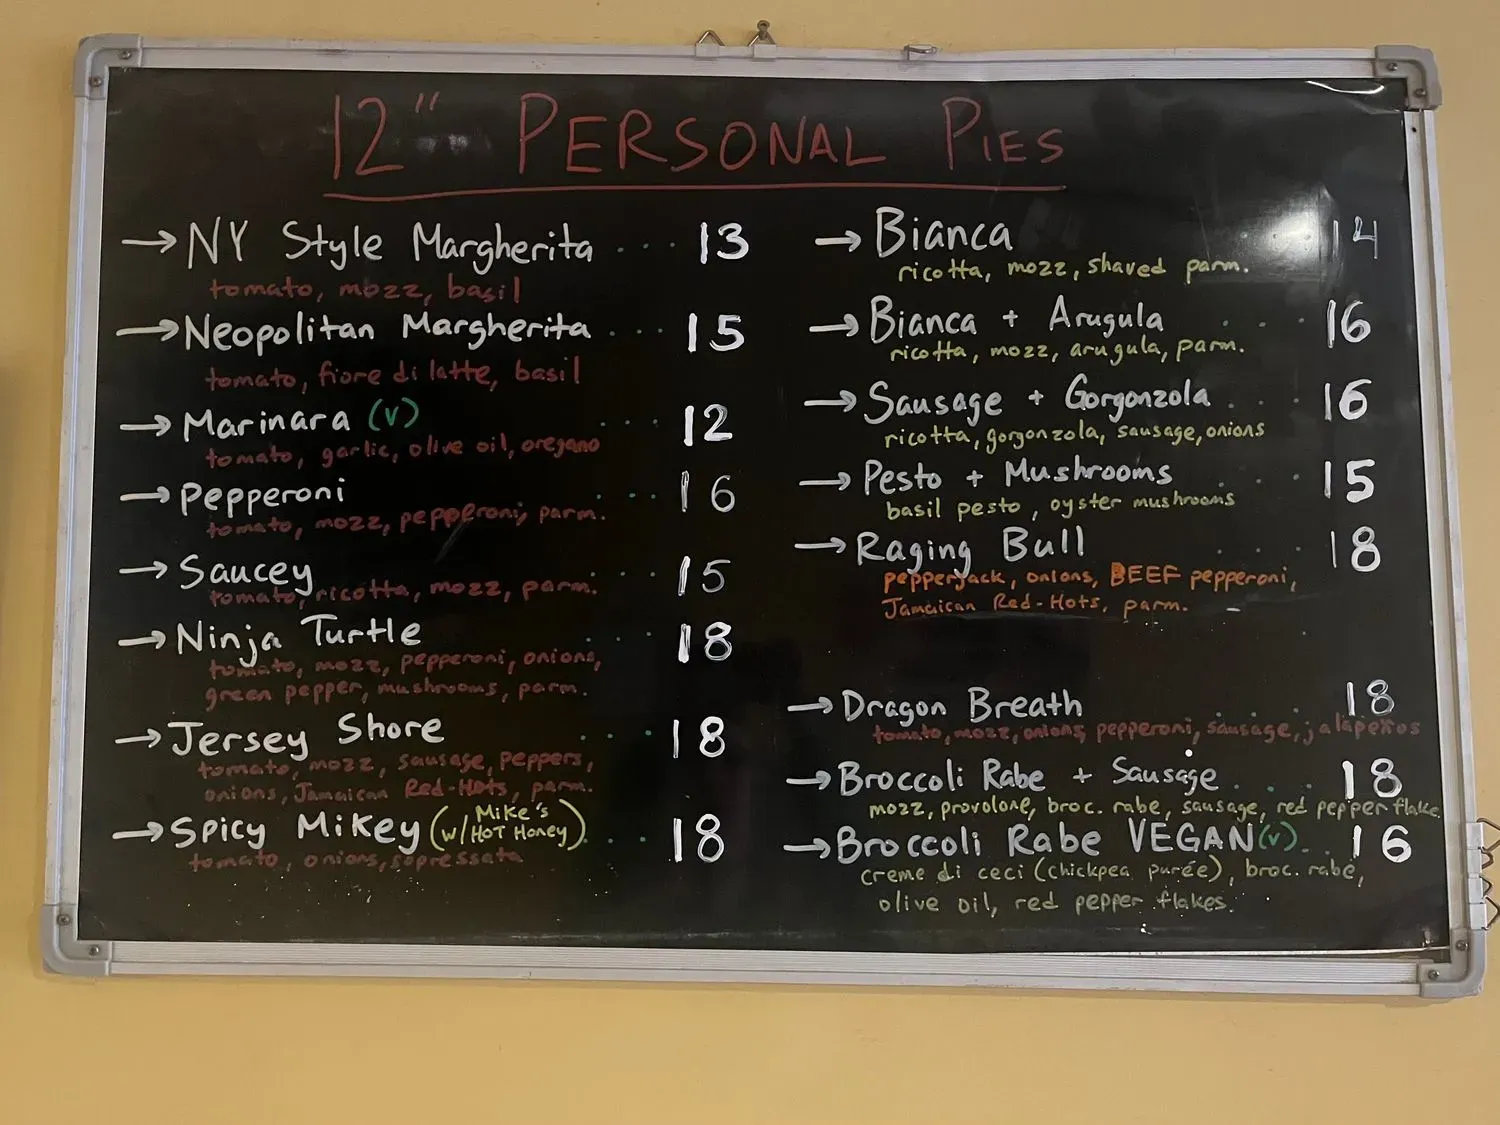 12" PERSONAL PIES
→ NY Style Margherita .... 13
tomato, mozz, basil
→ Neopolitan Margherita .... 15
tomato, fiore di latte, basil
→ Marinara (v) ... 12
tomato, garlic, olive oil, oregano
→ Pepperoni ... 16
tomato, mozz, pepperoni, parm.
→ Saucey ... 15
tomato, ricotta, mozz, parm.
→ Ninja Turtle ... 18
tomato, mozz, pepperoni, onions,
green pepper, mushrooms, parm.
→ Jersey Shore ... 18
tomato, mozz, sausage, peppers,
onions, Jamaican Red-Hots, parm.
→ Spicy Mikey (w/ Mike's HOT Honey) ... 18
tomato, onions, sopressata
→ Bianca ... 14
ricotta, mozz, shaved parm.
→ Bianca + Arugula ... 16
ricotta, mozz, arugula, parm.
→ Sausage + Gorgonzola ... 16
ricotta, gorgonzola, sausage, onions
→ Pesto + Mushrooms ... 15
basil pesto, oyster mushrooms
→ Raging Bull ... 18
pepperjack, onions, BEEF pepperoni,
Jamaican Red-Hots, parm.
→ Dragon Breath ... 18
tomato, mozz, onions, pepperoni, sausage, jalapeños
→ Broccoli Rabe + Sausage ... 18
mozz, provolone, broc. rabe, sausage, red pepper flake
→ Broccoli Rabe VEGAN (v) ... 16
creme di ceci (chickpea purée), broc. rabe,
olive oil, red pepper flakes.